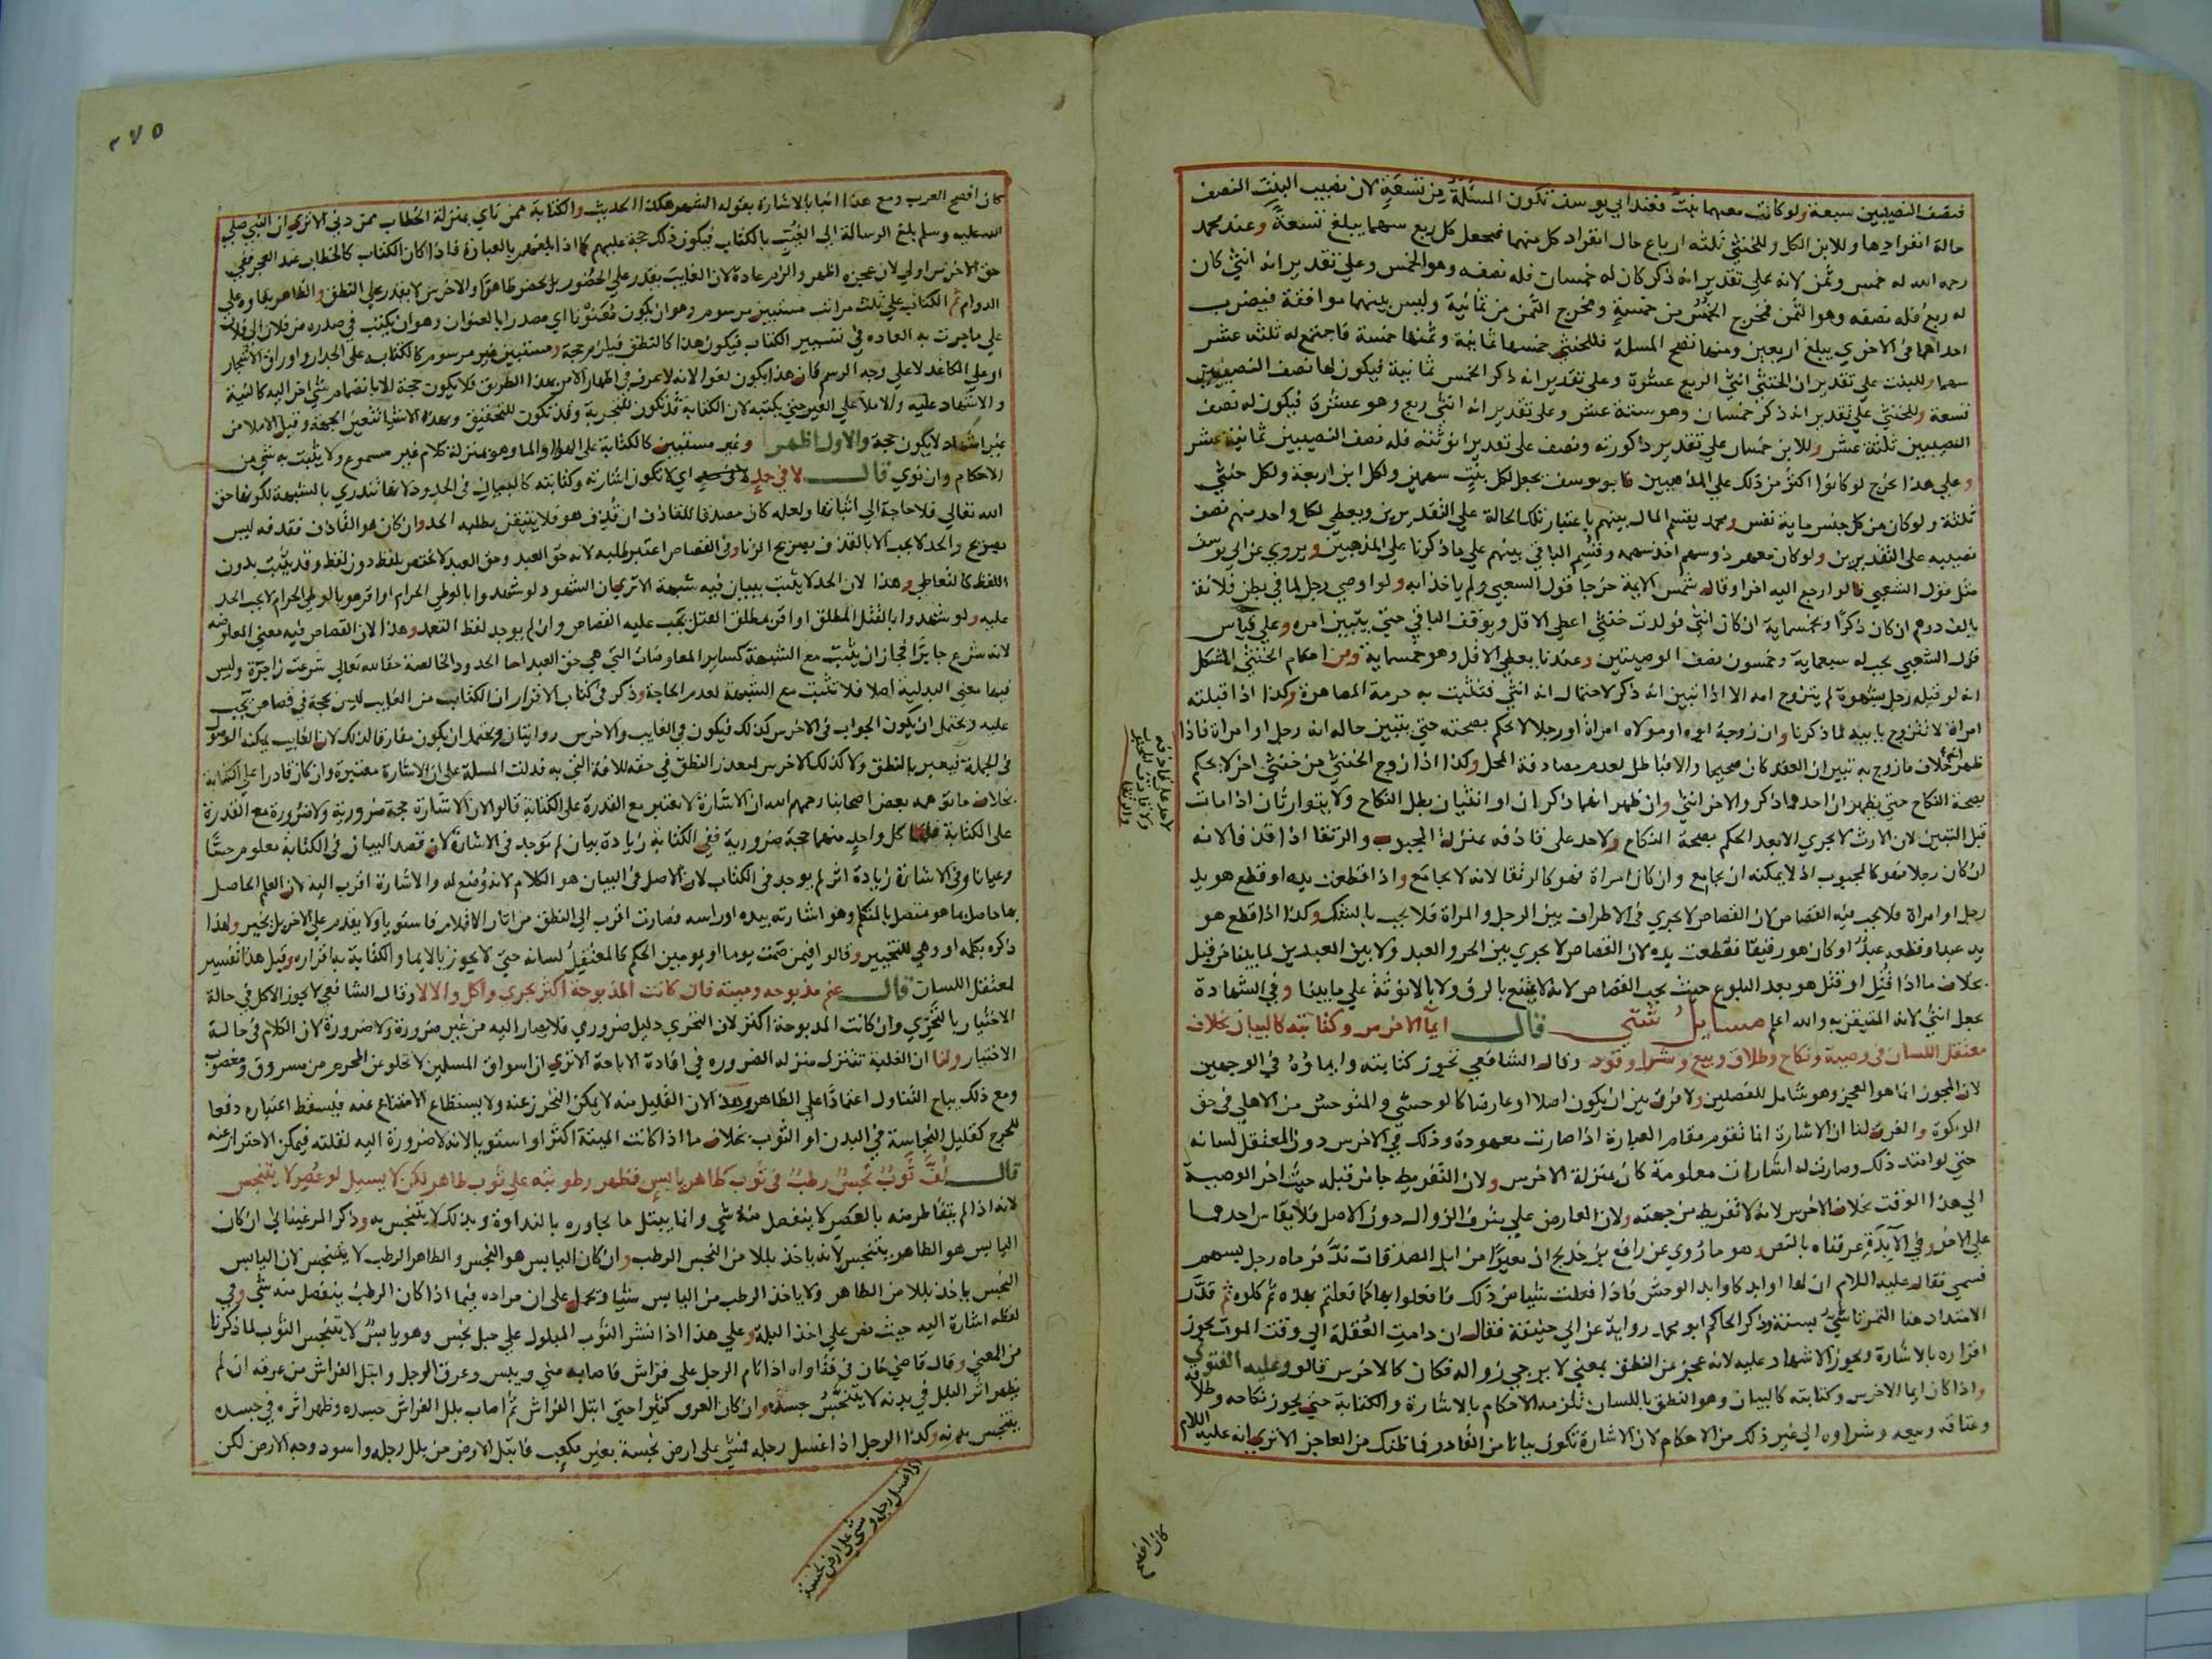 فنصف النصيبين سبعة ولو كانت معهما بنت فعند ابي يوسف تكون المسئلة من تسعة لان نصيب البنت النصف
حالة انفرادها وللابن الكل وللخنثى ثلثه ارباع حال انفراد كل منهما فيجعل كل ربع سهما يبلغ تسعة وعند محمد
رحمه الله له خمس وثمن لانه على تقدير انه ذكر كان له خمسان فله نصفه وهو الخمس وعلى تقدير انه انثى كان
له ربع فله نصفه وهو الثمن فمخرج الخمس من خمسة ومخرج الثمن من ثمانية وليس بينهما موافقة فيضرب
احداهما في الاخرى يبلغ اربعين ومنها تصح المسلة فللخنثى خمسها ثمانية وثمنها خمسة فاجتمع له ثلثه عشر
سهما وللبنت على تقدير ان الخنثى انثى الربع عشرة وعلى تقدير انه ذكر الخمس ثمانية فيكون لها نصف النصيبين
تسعة وللخنثى على تقدير انه ذكر خمسان وهو ستة عشر وعلى تقدير انه انثى ربع وهو عشرة فيكون له نصف
النصيبين ثلثة عشر وللابن خمسان على تقدير ذكورته ونصف على تقدير انوثته فله نصف النصيبين ثمانية عشر
وعلى هذا يخرج لو كانوا اكثر من ذلك على المذهبين فابو يوسف يجعل لكل بنت سهمين ولكل ابن اربعة ولكل خنثى
ثلثة ولو كان من كل جنس ماية نفس ومحمد يقسم المال بينهم باعتبار تلك الحالة على التقديرين ويعطى لكل واحد منهم نصف
نصيبه على التقديرين ولو كان معهم ذو سهم اخذ سهمه وقسم الباقي بينهم على ما ذكرنا على المذهبين ويروى عن ابي يوسف
مثل قول الشعبي قالوا رجع اليه اخرا وقال شمس الايمة خرجا قول الشعبي ولم ياخذا به ولو اوصى رجل لما في بطن فلانة
بالف درهم ان كان ذكرا وبخمسماية ان كان انثى فولدت خنثى اعطى الاقل ويوقف الباقي حتى يتبين امره وعلى قياس
قول الشعبي يجب له سبعماية وخمسون نصف الوصيتين وعندنا يعطى الاقل وهو خمسماية ومن احكام الخنثى المشكل
انه لو قبله رجل بشهوة لم يتزوج امه الا اذا تبين انه ذكر لاحتمال انه انثى فتثبت به حرمة المصاهرة وكذا اذا قبلته
امراة لا تتزوج بابيه لما ذكرنا وان زوجه ابوه او مولاه امراة او رجلا لا يحكم بصحته حتى يتبين حاله انه رجل او امراة فاذا
ظهر انه خلاف ما زوج به تبين ان العقد كان صحيحا والا فباطل لعدم مصادفة المحل وكذا اذا زوج الخنثى من خنثى اخر لا يحكم
بصحة النكاح حتى يظهر ان احدهما ذكر والاخر انثى وان ظهر انهما ذكران او انثيان بطل النكاح ولا يتوارثان اذا ماتا
قبل التبين لان الارث لا يجري الا بعد الحكم بصحة النكاح ولا حد على قاذفه بمنزلة المجبوب والرتقا اذا قذفا لانه
ان كان رجلا فهو كالمجبوب اذ لا يمكنه ان يجامع وان كان امراة فهو كالرتقا لانه لا يجامع واذا قطعت يده او قطع هو يد
رجل او امراة فلا يجب فيه القصاص لان القصاص لا يجري في الاطراف بين الرجل والمراة فلا يجب بالشك وكذا اذا قطع هو
يد عبد او قطعه عبد او كان هو رقيقا فقطعت يده لان القصاص لا يجري بين الحر والعبد ولا بين العبدين لما بينا من قبل
بخلاف ما اذا قتل او قتل هو بعد البلوغ حيث يجب القصاص لانه لا يمتنع بالرق ولا بالانوثة على ما بينا وفي الشهادة
يجعل انثى لانه المتيقن به والله اعلم مسايل شتى قال ايما الاخرس وكتابته كالبيان بخلاف
معتقل اللسان في وصية ونكاح وطلاق وبيع وشرا وقود وقال الشافعي تجوز كتابته وايماؤه في الوجهين
لان المجوز انما هو العجز وهو شامل للفصلين ولا فرق بين ان يكون اصلا او عارضا كالوحشي والمتوحش من الاهلي في حق
الزكوة والفرق لنا ان الاشارة انما تقوم مقام العبارة اذا صارت معهودة وذلك في الاخرس دون المعتقل لسانه
حتى لو امتد ذلك وصارت له اشارات معلومة كان بمنزلة الاخرس ولان التفريط جا من قبله حيث اخر الوصية
الى هذا الوقت بخلاف الاخرس لانه لا تفريط من جهته ولان العارض على شرف الزوال دون الاصل فلا يقاس احدهما
على الاخر وفي الآبدة عرفناه بالنص وهو ما روى عن رافع بن خديج ان بعيرا من ابل الصدقات ند فرماه رجل بسهم
فسمى فقال عليه السلام ان لها اوابد كاوابد الوحش فاذا فعلت شيا من ذلك فافعلوا بها كما فعلتم بهذه ثم كلوه ثم قدر
الامتداد هنا التمرتاشي بسنة وذكر الحاكم ابو محمد رواية عن ابي حنيفة فقال ان دامت العقلة الى وقت الموت يجوز
اقراره بالاشارة ويجوز الاشهاد عليه لانه عجز عن النطق بمعنى لا يرجى زواله فكان كالاخرس قالوا وعليه الفتوى
واذا كان ايما الاخرس وكتابته كالبيان وهو النطق باللسان تلزمه الاحكام بالاشارة والكتابة حتى يجوز نكاحه وطلاقه
وعتاقه وبيعه وشراوه الى غير ذلك من الاحكام لان الاشارة تكون بيانا من القادر فما ظنك من العاجز الا ترى انه عليه السلام
لا حد على قاذفه
كان افصح
٢٧٥
كان افصح العرب ومع هذا اتينا بالاشارة بقوله الشهر هكذا الحديث والكتابة ممن ناى بمنزلة الخطاب ممن دنى الا ترى ان النبي صلى
الله عليه وسلم بلغ الرسالة الى الغيب بالكتاب فيكون ذلك حجة عليهم كما اذا بلغهم بالعبارة فاذا كان الكتاب كالخطاب عند العجز ففي
حق الاخرس اولى لان عجزه اظهر والزم عادة لان الغايب يقدر على الحضور بل يحضر ظاهرا والاخرس لا يقدر على النطق والظاهر بقاوه على
الدوام ثم الكتابة على ثلث مراتب مستبين مرسوم وهو ان يكون معنونا اي مصدرا بالعنوان وهو ان يكتب في صدره من فلان الى فلان
على ما جرت به العاده في تسيير الكتاب فيكون هذا كالنطق فيلزم حجة ومستبين غير مرسوم كالكتابة على الجدار واوراق الاشجار
او على الكاغد لا على وجه الرسم فان هذا يكون لغوا لانه لا عرف في اظهار الامر بهذا الطريق فلا يكون حجة الا بانضمام شي اخر اليه كالنية
والاشهاد عليه والاملا على الغير حتى يكتبه لان الكتابة قد تكون للتجربة وقد تكون للتحقيق وبهذه الاشيا تتعين الجهة وقيل الاملا من
غير اشهاد لا يكون حجة والاول اظهر وغير مستبين كالكتابة على الهوا والما وهو بمنزلة كلام غير مسموع ولا يثبت به شي من
الاحكام وان نوى قال لا في حد اي لا تكون اشارته وكتابته كالبيان في الحدود لانها تندرى بالشبهة لكونها حق
الله تعالى فلا حاجة الى اثباتها ولعله كان مصدقا للقاذف ان قذف هو فلا يتيقن بطلبه الحد وان كان هو القاذف فقذفه ليس
بصريح والحد لا يجب الا بالقذف بصريح الزنا وفي القصاص اعتبر طلبه لانه حق العبد وحق العبد لا يختص بلفظ دون لفظ وقد يثبت بدون
اللفظ كالتعاطي وهذا لان الحد لا يثبت ببيان فيه شبهة الا ترى ان الشهود لو شهدوا بالوطى الحرام او اقر هو بالوطى الحرام لا يجب الحد
عليه ولو شهدوا بالقتل المطلق او اقر بمطلق القتل يجب عليه القصاص وان لم يوجد لفظ التعمد وهذا لان القصاص فيه معنى المعاوضة
لانه شرع جابرا فجاز ان يثبت مع الشبهة كساير المعاوضات التي هي حق العبد اما الحدود الخالصة حقا لله تعالى شرعت زاجرة وليس
فيها معنى البدلية اصلا فلا تثبت مع الشبهة لعدم الحاجة وذكر في كتاب الاقرار ان الكتاب من الغايب ليس بحجة في قصاص يجب
عليه ويحتمل ان يكون الجواب في الاخرس كذلك فيكون في الغايب والاخرس روايتان ويحتمل ان يكون مفارقا لذلك لان الغايب يمكنه الوصول
في الجملة فيعبر بالنطق ولا كذلك الاخرس لتعذر النطق في حقه للافة التي به فدلت المسلة على ان الاشارة معتبرة وان كان قادرا على الكتابة
بخلاف ما توهمه بعض اصحابنا رحمهم الله ان الاشارة لا تعتبر مع القدرة على الكتابة قالوا لان الاشارة حجة ضرورية ولا ضرورة مع القدرة
على الكتابة قلنا كل واحد منهما حجة ضرورية ففي الكتابة زيادة بيان لم توجد في الاشارة لان قصد البيان في الكتابة معلوم حسا
وعيانا وفي الاشارة زيادة اثر لم يوجد في الكتاب لان الاصل في البيان هو الكلام لانه وضع له والاشارة اقرب اليه لان العلم الحاصل
بها حاصل بما هو متصل بالمتكلم وهو اشارته بيده او راسه فصارت اقرب الى النطق من اثار الاقلام فاستويا ولا يقدم على الاخر بل يخير ولهذا
ذكره بكلمة او وهي للتخيير وقالوا فيمن صمت يوما او يومين الحكم كالمعتقل لسانه حتى لا يجوز بالايما والكتابة باقراره وقيل هذا تفسير
لمعتقل اللسان قال غنم مذبوحه وميتة فان كانت المذبوحة اكثر تحرى واكل والا لا وقال الشافعي لا يجوز الاكل في حالة
الاختيار بالتحري وان كانت المذبوحة اكثر لان التحري دليل ضروري فلا يصار اليه من غير ضرورة ولا ضرورة لان الكلام في حالة
الاختيار ولنا ان الغلبة تنزل منزلة الضروره في افادة الاباحة الا ترى ان اسواق المسلمين لا تخلو عن المحرم من مسروق ومغصوب
ومع ذلك يباح التناول اعتمادا على الظاهر وهذا لان القليل منه لا يمكن التحرز عنه ولا يستطاع الامتناع عنه فيسقط اعتباره دفعا
للحرج كقليل النجاسة في البدن او الثوب بخلاف ما اذا كانت الميتة اكثر او استويا لانه لا ضرورة اليه لقلته فيمكن الاحتراز عنه
قال لف ثوب نجس رطب في ثوب طاهر يابس فظهر رطوبته على ثوب طاهر لكن لا يسيل لو عصر لا يتنجس
لانه اذا لم يتقاطر منه بالعصر لا ينفصل منه شي وانما يبتل ما يجاوره بالنداوة وبذلك لا يتنجس به وذكر المرغيناني ان كان
اليابس هو الطاهر يتنجس لانه ياخذ بللا من النجس الرطب وان كان اليابس هو النجس والطاهر الرطب لا يتنجس لان اليابس
النجس ياخذ بللا من الطاهر ولا ياخذ الرطب من اليابس شيا ويحمل على ان مراده فيما اذا كان الرطب ينفصل منه شي وفي
لفظه اشارة اليه حيث نص على اخذ البلة وعلى هذا اذا نشر الثوب المبلول على حبل نجس وهو يابس لا يتنجس الثوب لما ذكرنا
من المعنى وقال قاضي خان في فتاواه اذا نام الرجل على فراش فاصابه مني ويبس وعرق الرجل وابتل الفراش من عرقه ان لم
يظهر اثر البلل في بدنه لا يتنجس جسده وان كان العرق كثيرا حتى ابتل الفراش ثم اصاب بلل الفراش جسده وظهر اثره في جسده
يتنجس بدنه وكذا الرجل اذا غسل رجله فمشى على ارض نجسة بغير مكعب فابتل الارض من بلل رجله واسود وجه الارض لكن
اذا غسل رجله ومشى على ارض نجسة